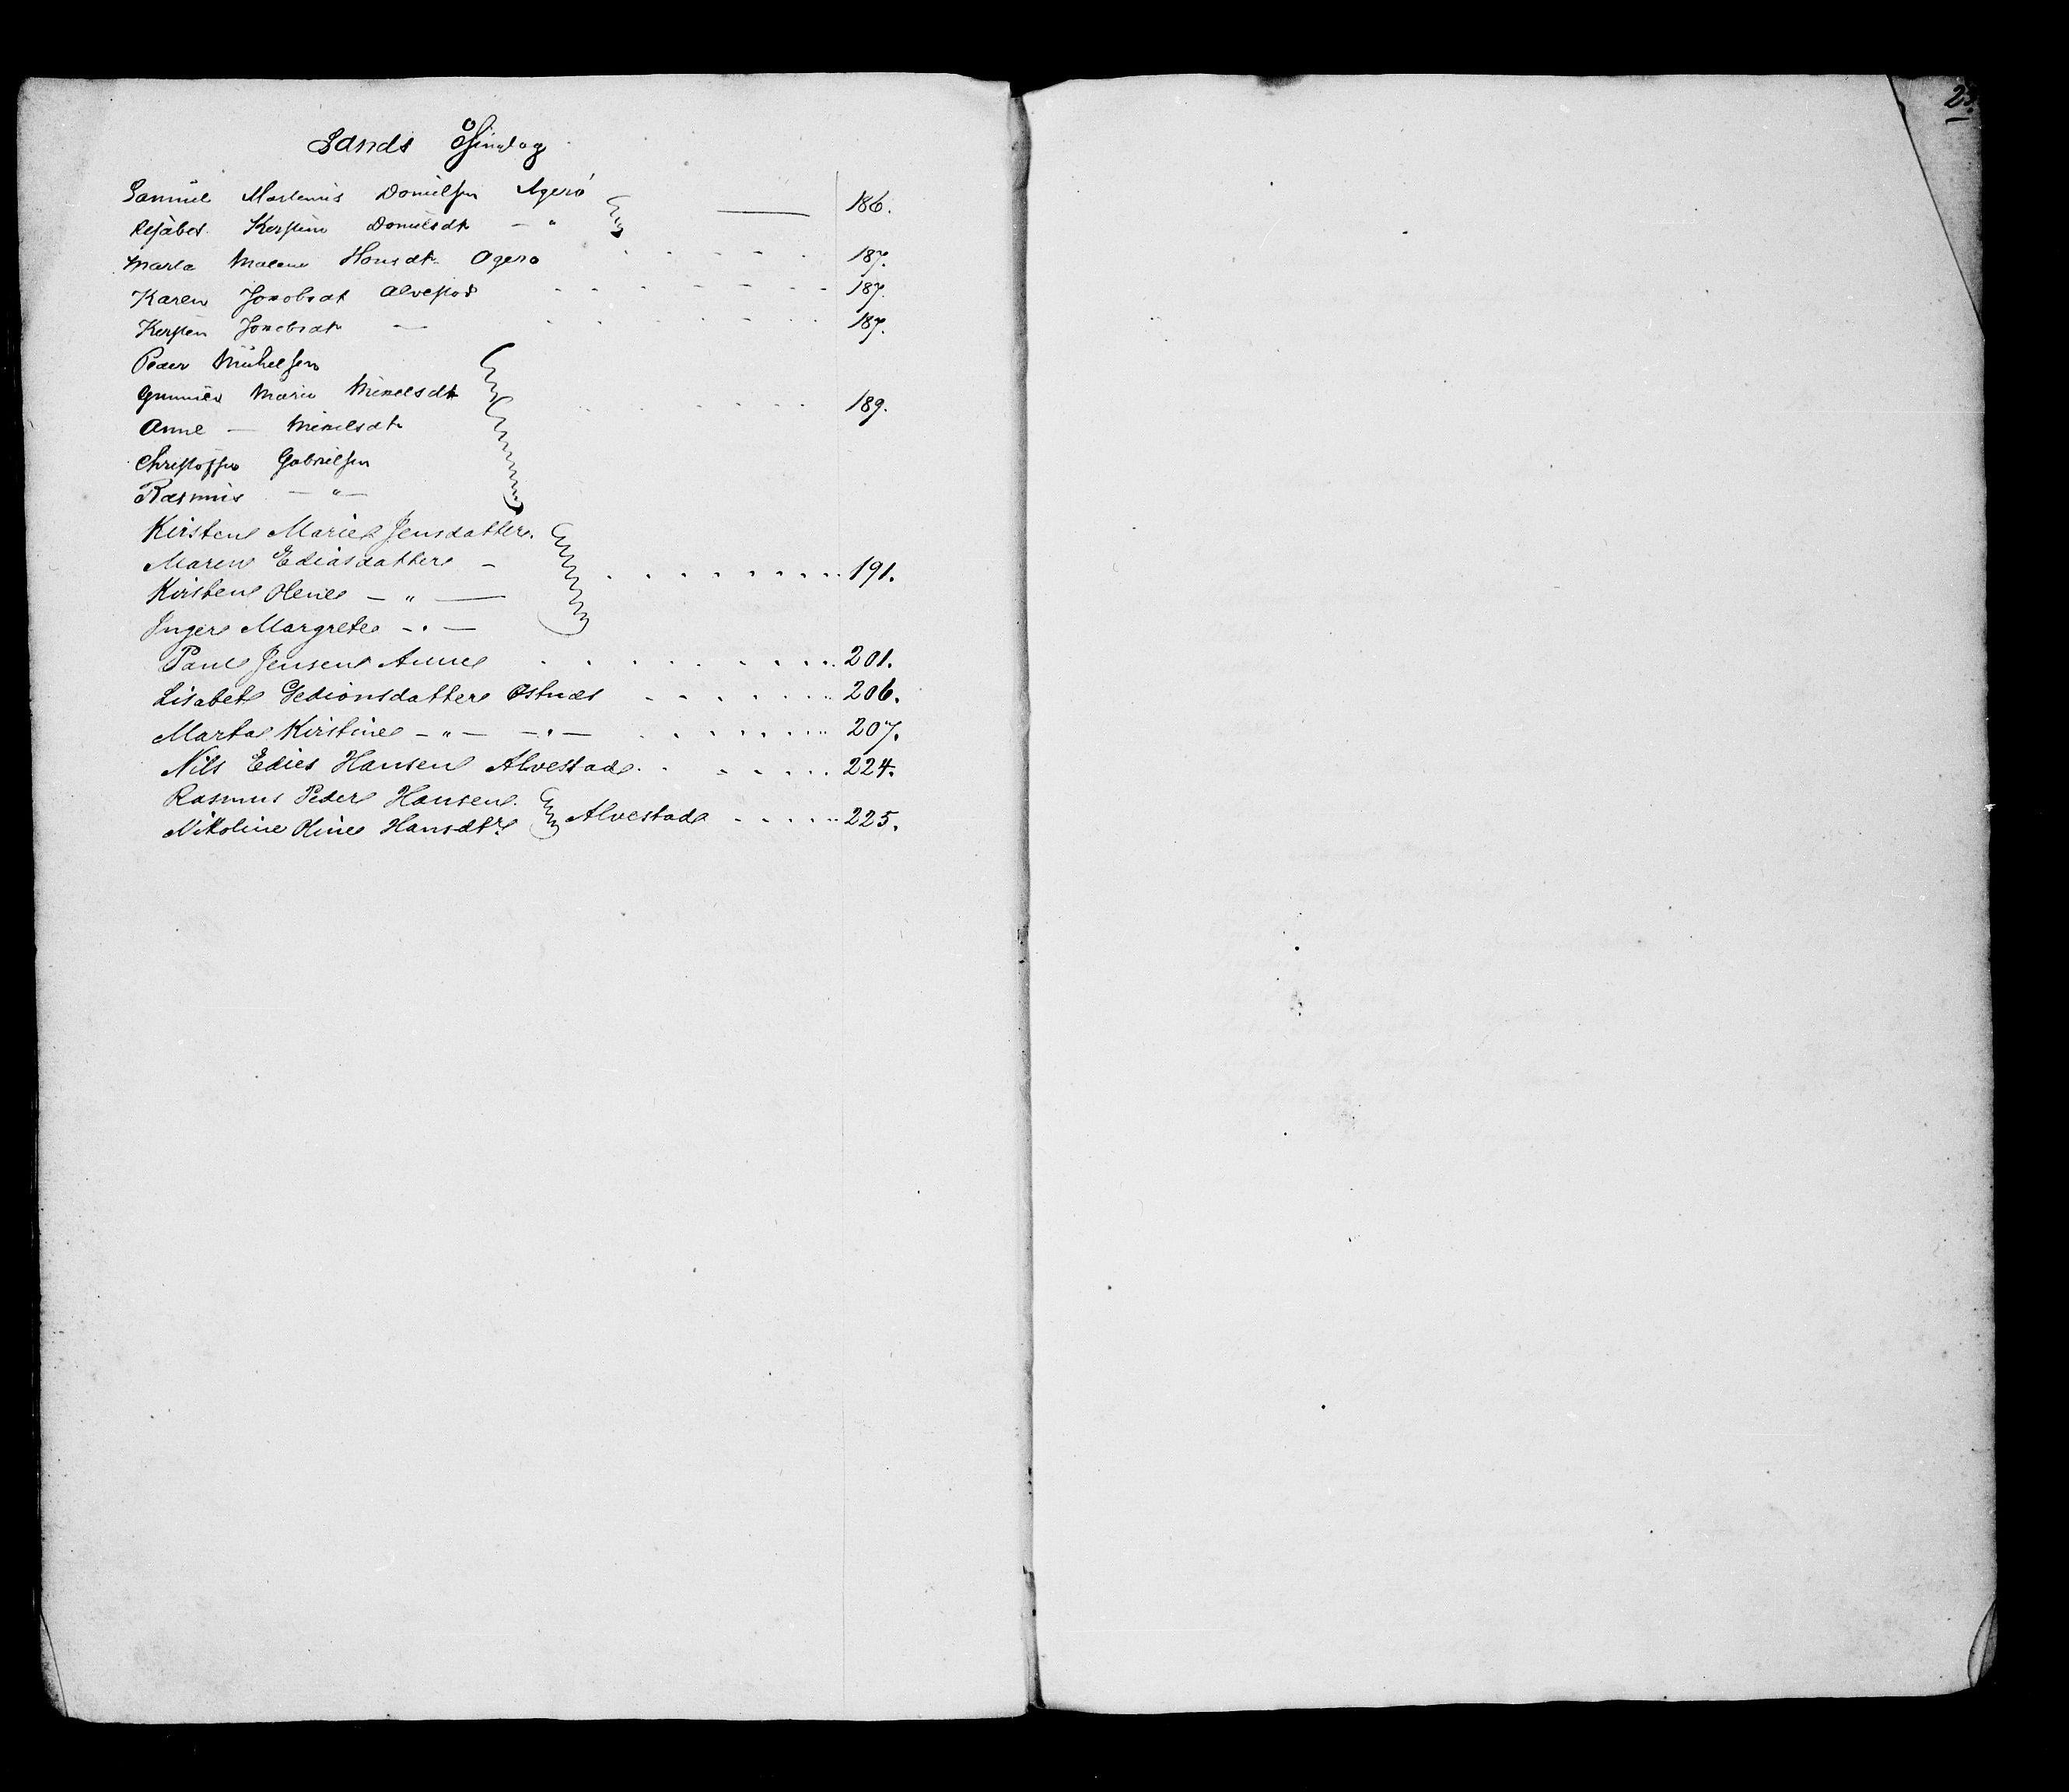 23.
Sands
Samuel Martenus Danielsen Agerø } 186.
Elisabet Kerstine Danielsdt — "
Marta Malene Hansdt. Agerø 187.
Karen Jakobsdt Alvestad 187.
Kersten Jakobsdt — 187.
Peder Mickelsen
Gunnild Marie Mikelsdt } 189.
Anne — Mikelsdt
Christoffer Gabrielsen
Rasmus — " —
Kirsten Marie Jensdatter.
Maren Ediasdatter — } 191.
Kirsten Oline — " —
Inger Margrete — " —
Paul Jensen 201.
Lisabet Gedionsdatter Østnæs 206.
Marta Kirstine — " — — " — 207.
Nils Edies Hansen Alvestad. 224.
Rasmus Peder Hansen.
Nikoline Oline Hansdtr } Alvestad 225.